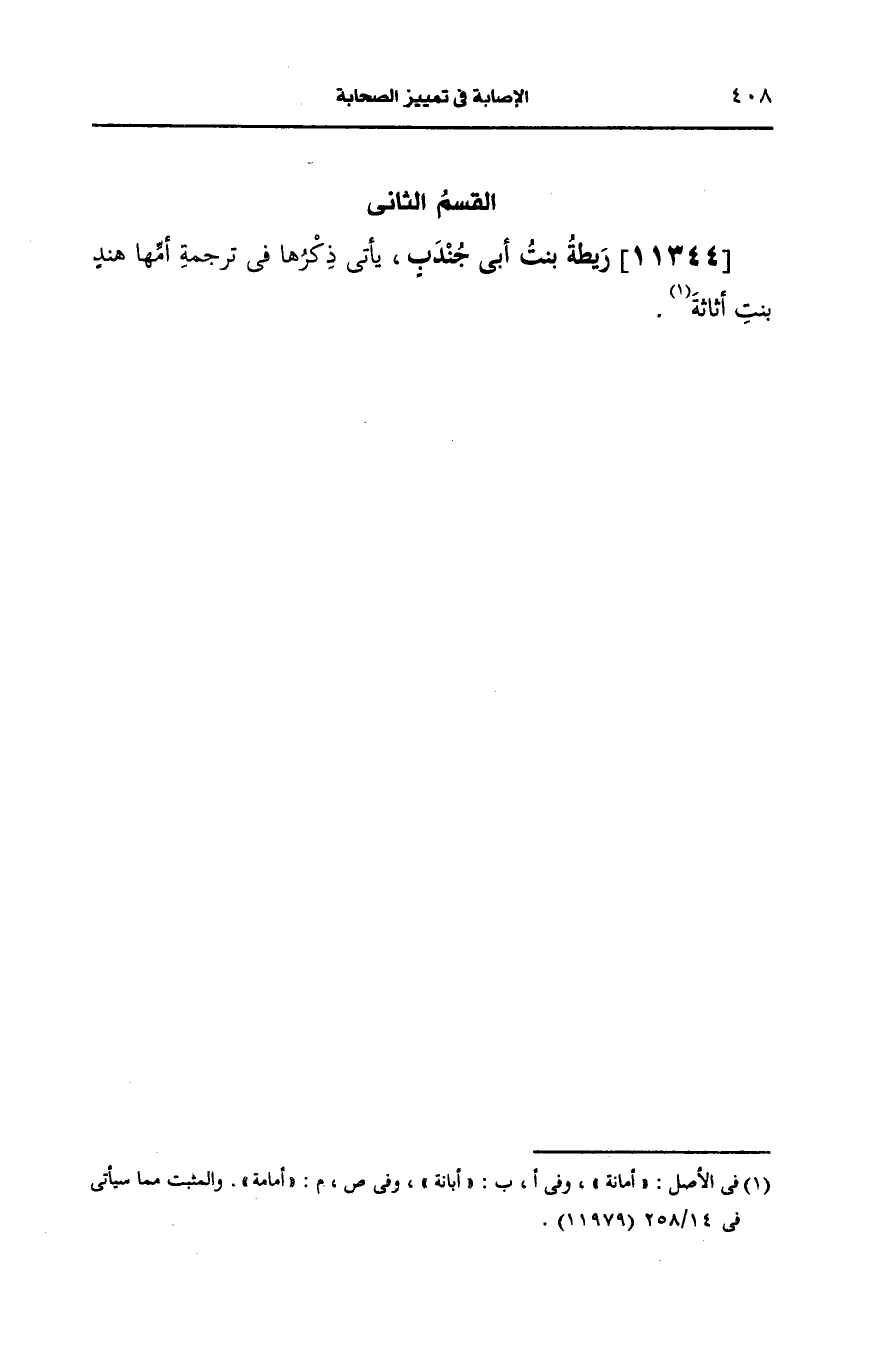 ٤٠٨ الإصابة فى تمييز الصحابة
القسمُ الثانى
[١١٣٤٤] رَيطةُ بنتُ أبى جُنْدَبٍ ، يأتى ذِكْرُها فى ترجمةِ أمِّها هندٍ
بنتِ أثاثةَ(١) .
(١) فى الأصل : « أمانة » ، وفى أ ، ب : « أبانة » ، وفى ص ، م : «أمامة» . والمثبت مما سيأتى
فى ٢٥٨/١٤ (١١٩٧٩) .